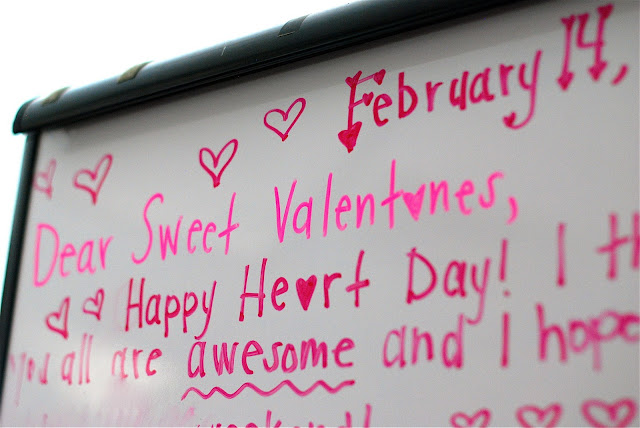 February 14,
Dear Sweet Valentines,
Happy Heart Day! I th
you all are awesome and I hope
weekend!